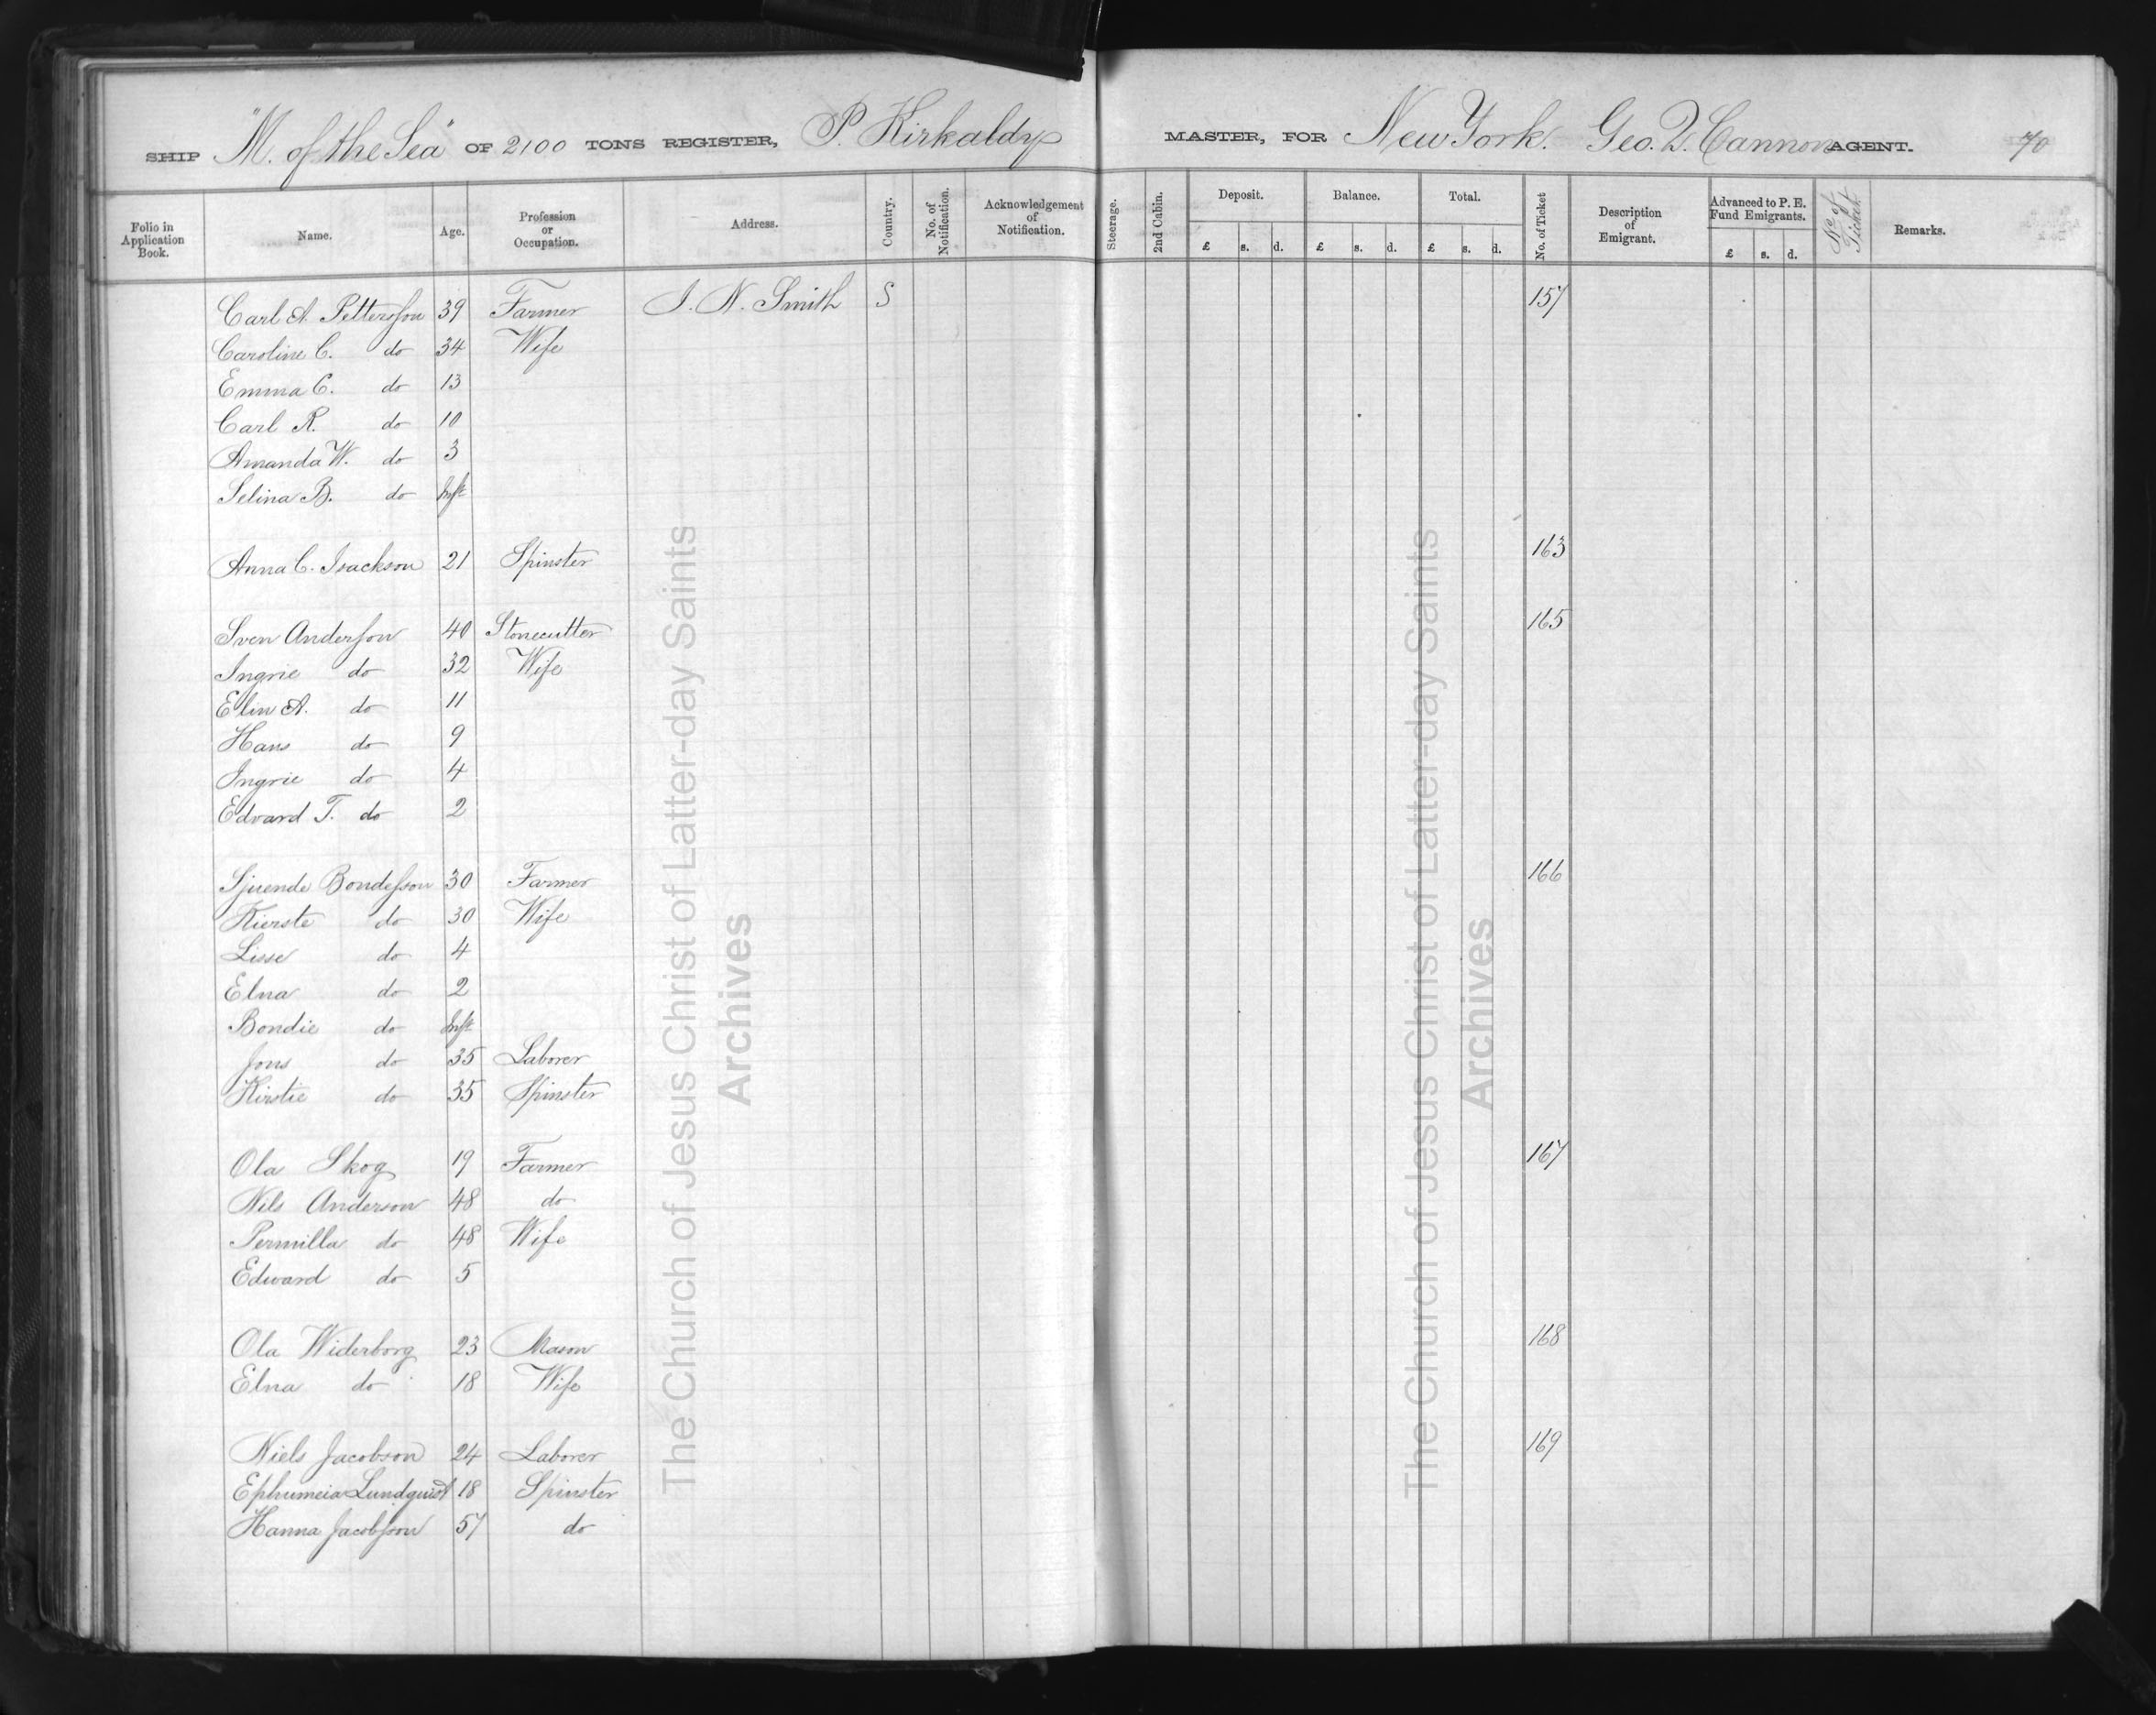 SHIP "M. of the Sea" OF 2100 TONS REGISTER, P. Kirkaldy MASTER, FOR New York. Geo. Q. Cannon AGENT. 70
Folio in Application Book. Name. Age. Profession or Occupation. Address. Country. No. of Notification. Acknowledgement of Notification. Steerage. 2nd Cabin. Deposit. Balance. Total. No. of Ticket Description of Emigrant. Advanced to P. E. Fund Emigrants. No of Ticket. Remarks.
£ s. d. £ s. d. £ s. d. £ s. d.
Carl A. Pettersson 39 Farmer J. N. Smith S 157
Caroline C. do 34 Wife
Emma C. do 13
Carl R. do 10
Amanda W. do 3
Selina B. do Inft
Anna C. Isackson 21 Spinster 163
Sven Andersson 40 Stonecutter 165
Ingrie do 32 Wife
Elin A. do 11
Hans do 9
Ingrie do 4
Edvard T. do 2
Sjuende Bondesson 30 Farmer 166
Kierste do 30 Wife
Lisse do 4
Elna do 2
Bondie do Inft
Jons do 35 Laborer
Kirstie do 35 Spinster
Ola Skog 19 Farmer 167
Nils Anderson 48 do
Pernilla do 48 Wife
Edward do 5
Ola Widerborg 23 Mason 168
Elna do 18 Wife
Niels Jacobson 24 Laborer 169
Ephumeia Lundquist 18 Spinster
Hanna Jacobsson 57 do
The Church of Jesus Christ of Latter-day Saints
Archives
The Church of Jesus Christ of Latter-day Saints
Archives